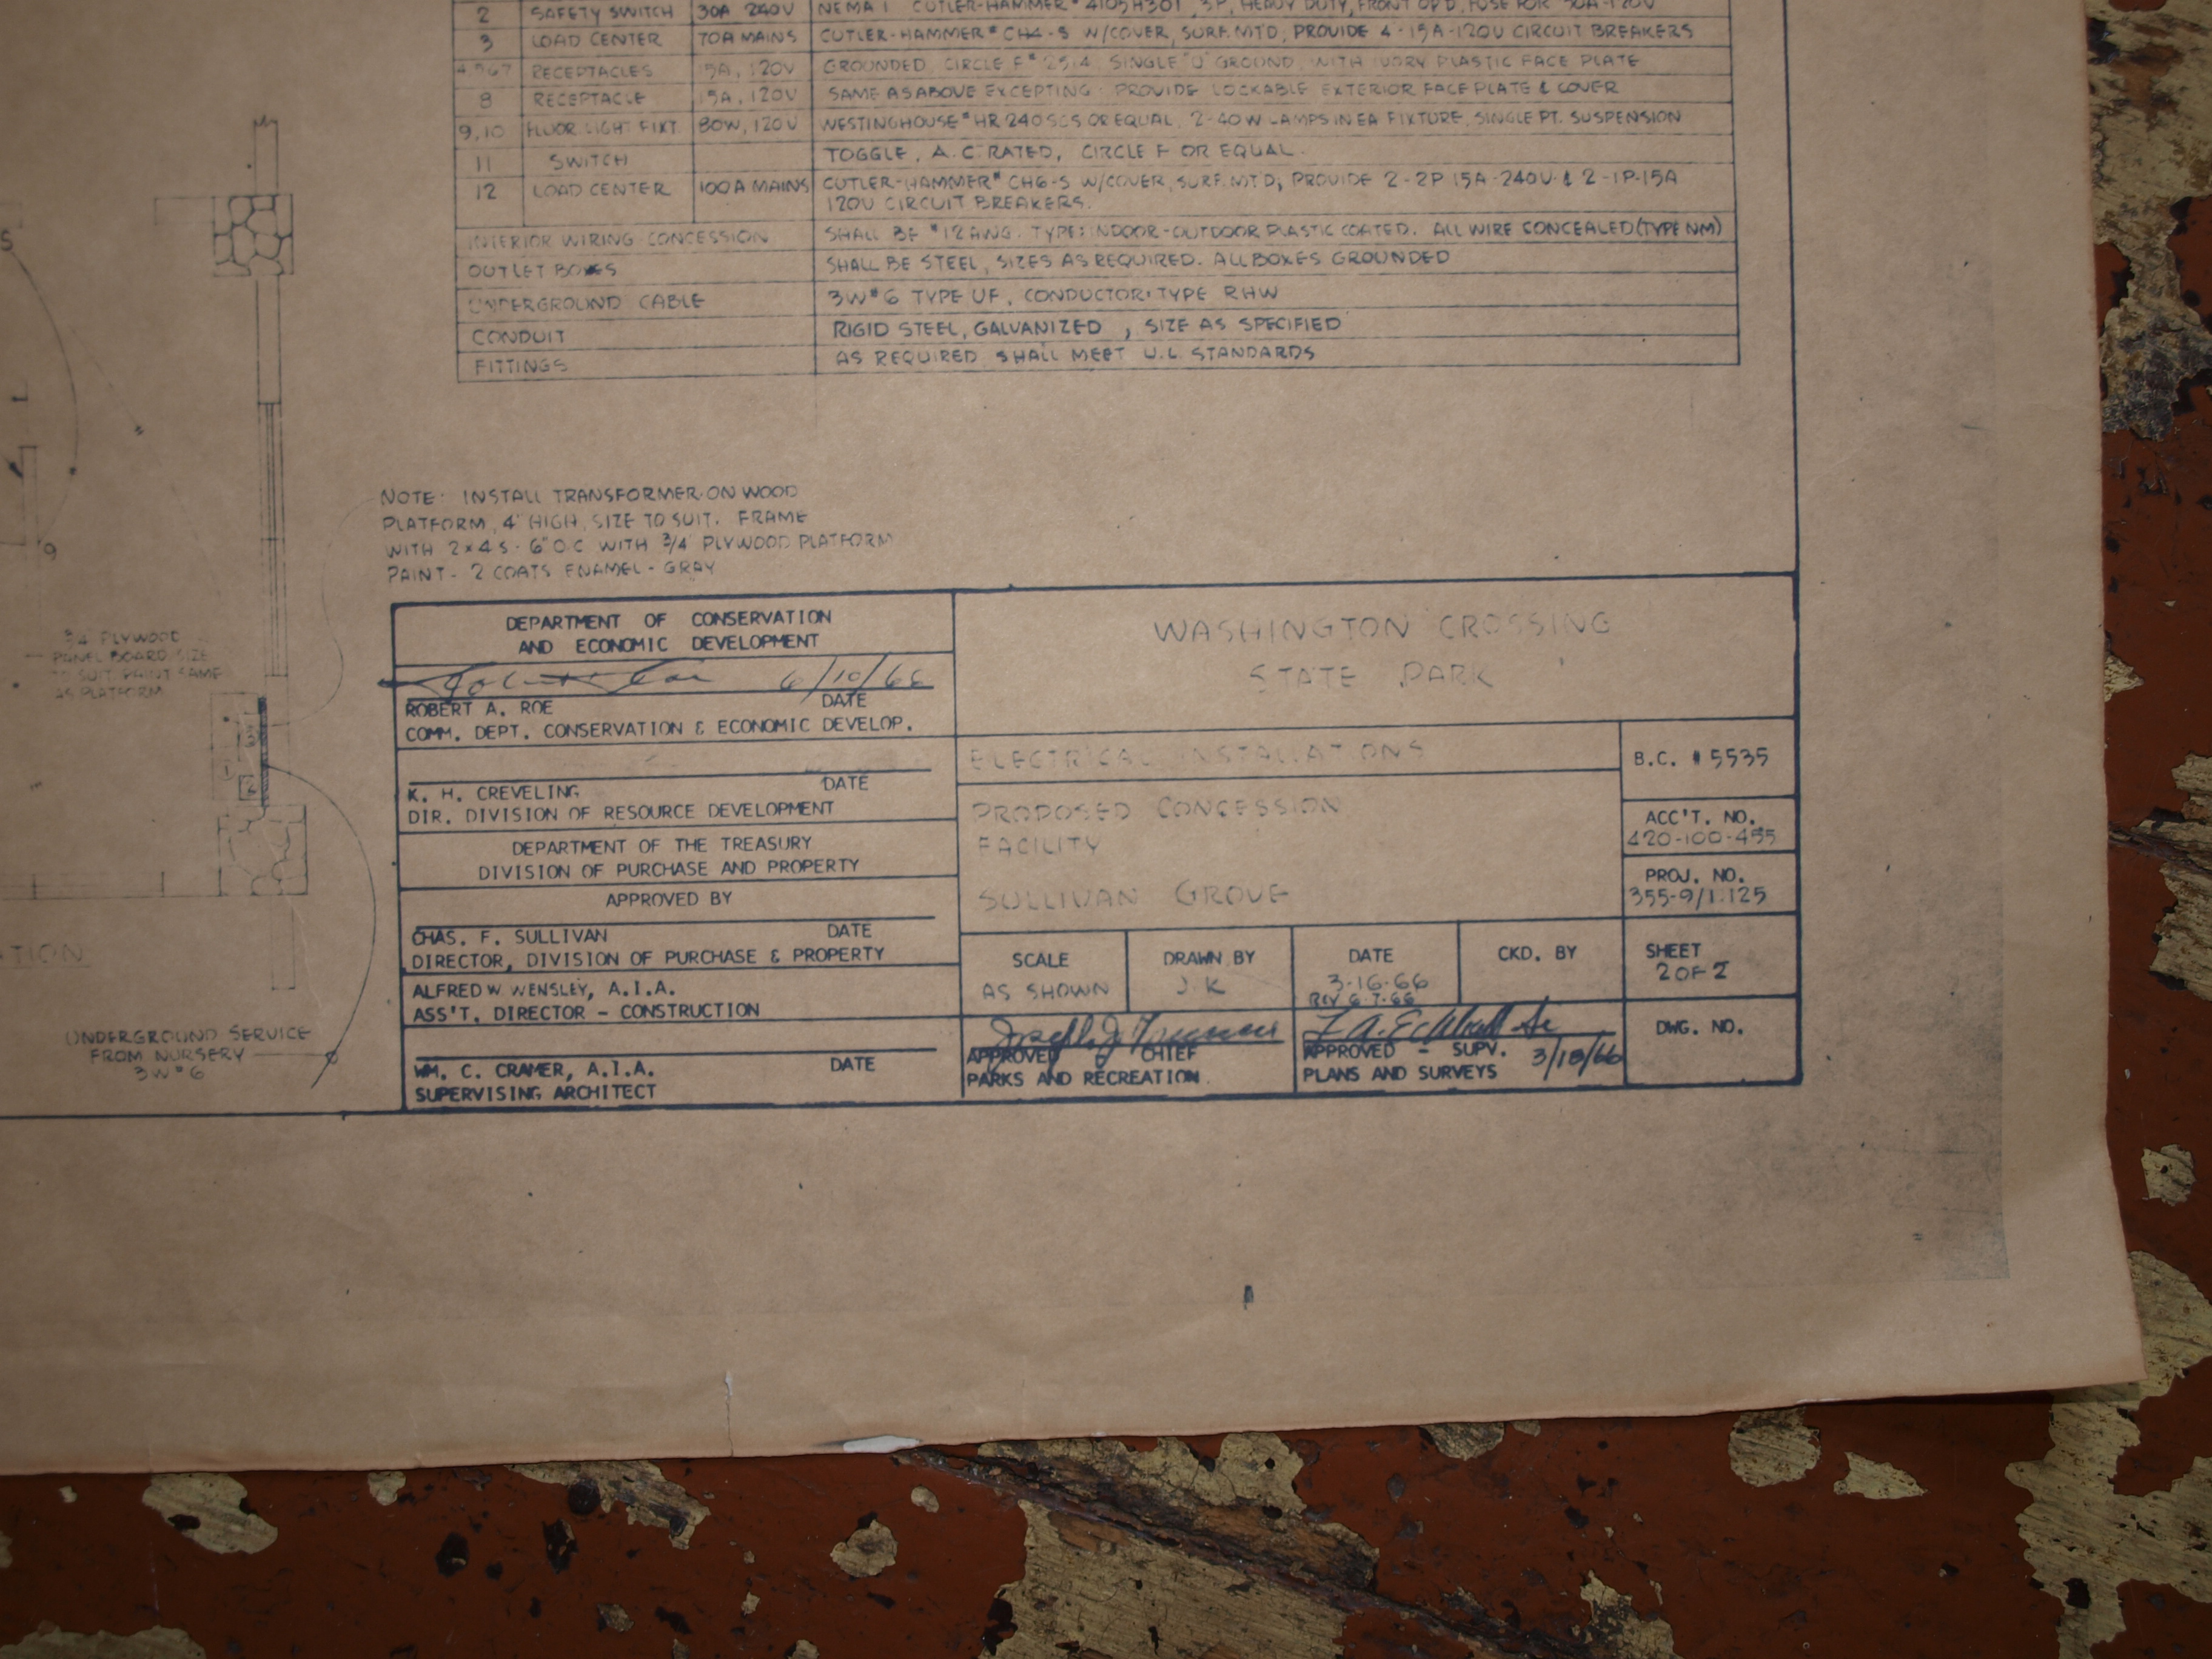 2 SAFETY SWITCH 30A 240V NEMA 1 CUTLER-HAMMER # 4105H301, 3P, HEAVY DUTY, FRONT OP'D, FUSE FOR 30A-120V
3 LOAD CENTER 70A MAINS CUTLER-HAMMER # CH4-S W/COVER, SURF. MT'D, PROVIDE 4-15A-120V CIRCUIT BREAKERS
4,5,6,7 RECEPTACLES 15A, 120V GROUNDED, CIRCLE F # 2514, SINGLE "U" GROUND, WITH IVORY PLASTIC FACE PLATE
8 RECEPTACLE 15A, 120V SAME AS ABOVE EXCEPTING: PROVIDE LOCKABLE EXTERIOR FACE PLATE & COVER
9,10 FLUOR. LIGHT FIXT. 80W, 120V WESTINGHOUSE # HR 240SCS OR EQUAL, 2-40W LAMPS IN EA FIXTURE, SINGLE PT. SUSPENSION
11 SWITCH TOGGLE, A.C. RATED, CIRCLE F OR EQUAL.
12 LOAD CENTER 100A MAINS CUTLER-HAMMER # CH6-S W/COVER, SURF. MT'D; PROVIDE 2-2P 15A-240V & 2-1P-15A
120V CIRCUIT BREAKERS.
INTERIOR WIRING-CONCESSION SHALL BE #12 AWG. TYPE: INDOOR-OUTDOOR PLASTIC COATED. ALL WIRE CONCEALED (TYPE NM)
OUTLET BOXES SHALL BE STEEL, SIZES AS REQUIRED. ALL BOXES GROUNDED
UNDERGROUND CABLE 3W#6 TYPE UF, CONDUCTOR: TYPE RHW
CONDUIT RIGID STEEL, GALVANIZED, SIZE AS SPECIFIED
FITTINGS AS REQUIRED. SHALL MEET U.L. STANDARDS
NOTE: INSTALL TRANSFORMER ON WOOD
PLATFORM, 4' HIGH, SIZE TO SUIT. FRAME
WITH 2x4S-6" O.C. WITH 3/4" PLYWOOD PLATFORM
PAINT - 2 COATS ENAMEL - GRAY
9
3/4" PLYWOOD
PANEL BOARD, SIZE
TO SUIT. PAINT SAME
AS PLATFORM
UNDERGROUND SERVICE
FROM NURSERY
3W#6
DEPARTMENT OF CONSERVATION
AND ECONOMIC DEVELOPMENT
6/10/66
ROBERT A. ROE DATE
COMM. DEPT. CONSERVATION & ECONOMIC DEVELOP.
K. H. CREVELING DATE
DIR. DIVISION OF RESOURCE DEVELOPMENT
DEPARTMENT OF THE TREASURY
DIVISION OF PURCHASE AND PROPERTY
APPROVED BY
CHAS. F. SULLIVAN DATE
DIRECTOR, DIVISION OF PURCHASE & PROPERTY
ALFRED W WENSLEY, A.I.A.
ASS'T. DIRECTOR - CONSTRUCTION
WM. C. CRAMER, A.I.A. DATE
SUPERVISING ARCHITECT
WASHINGTON CROSSING
STATE PARK
ELECTRICAL INSTALLATIONS
PROPOSED CONCESSION
FACILITY
SULLIVAN GROVE
B.C. # 5535
ACC'T. NO.
420-100-455
PROJ. NO.
355-9/1.125
SCALE
AS SHOWN
DRAWN BY
J K
DATE
3-16-66
REV 6-7-66
CKD. BY
SHEET
2 OF 2
APPROVED CHIEF
PARKS AND RECREATION
APPROVED - SUPV.
PLANS AND SURVEYS 3/18/66
DWG. NO.